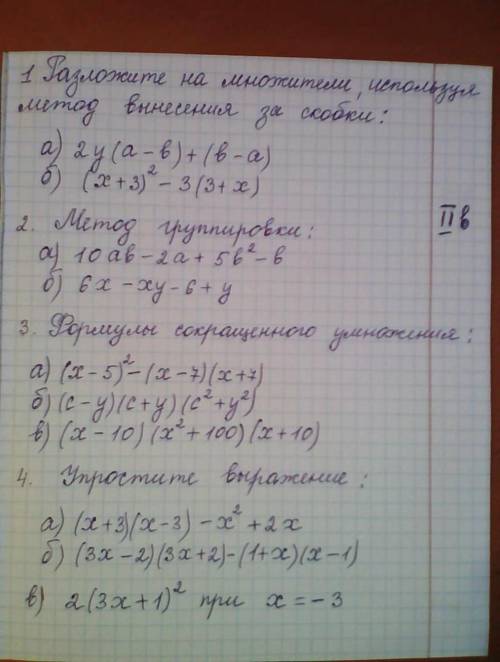 1 Разложите на множители, используя
метод вынесения за скобки:
а) 2y(a-в)+(в-a)
б) (x+3)²-3(3+x)
II в
2. Метод группировки:
а) 10aв-2a+5в²-в
б) 6x-xy-6+y
3. Формулы сокращенного умножения:
а) (x-5)²-(x-7)(x+7)
б) (c-y)(c+y)(c²+y²)
в) (x-10)(x²+100)(x+10)
4. Упростите выражение:
а) (x+3)(x-3)-x²+2x
б) (3x-2)(3x+2)-(1+x)(x-1)
в) 2(3x+1)² при x=-3